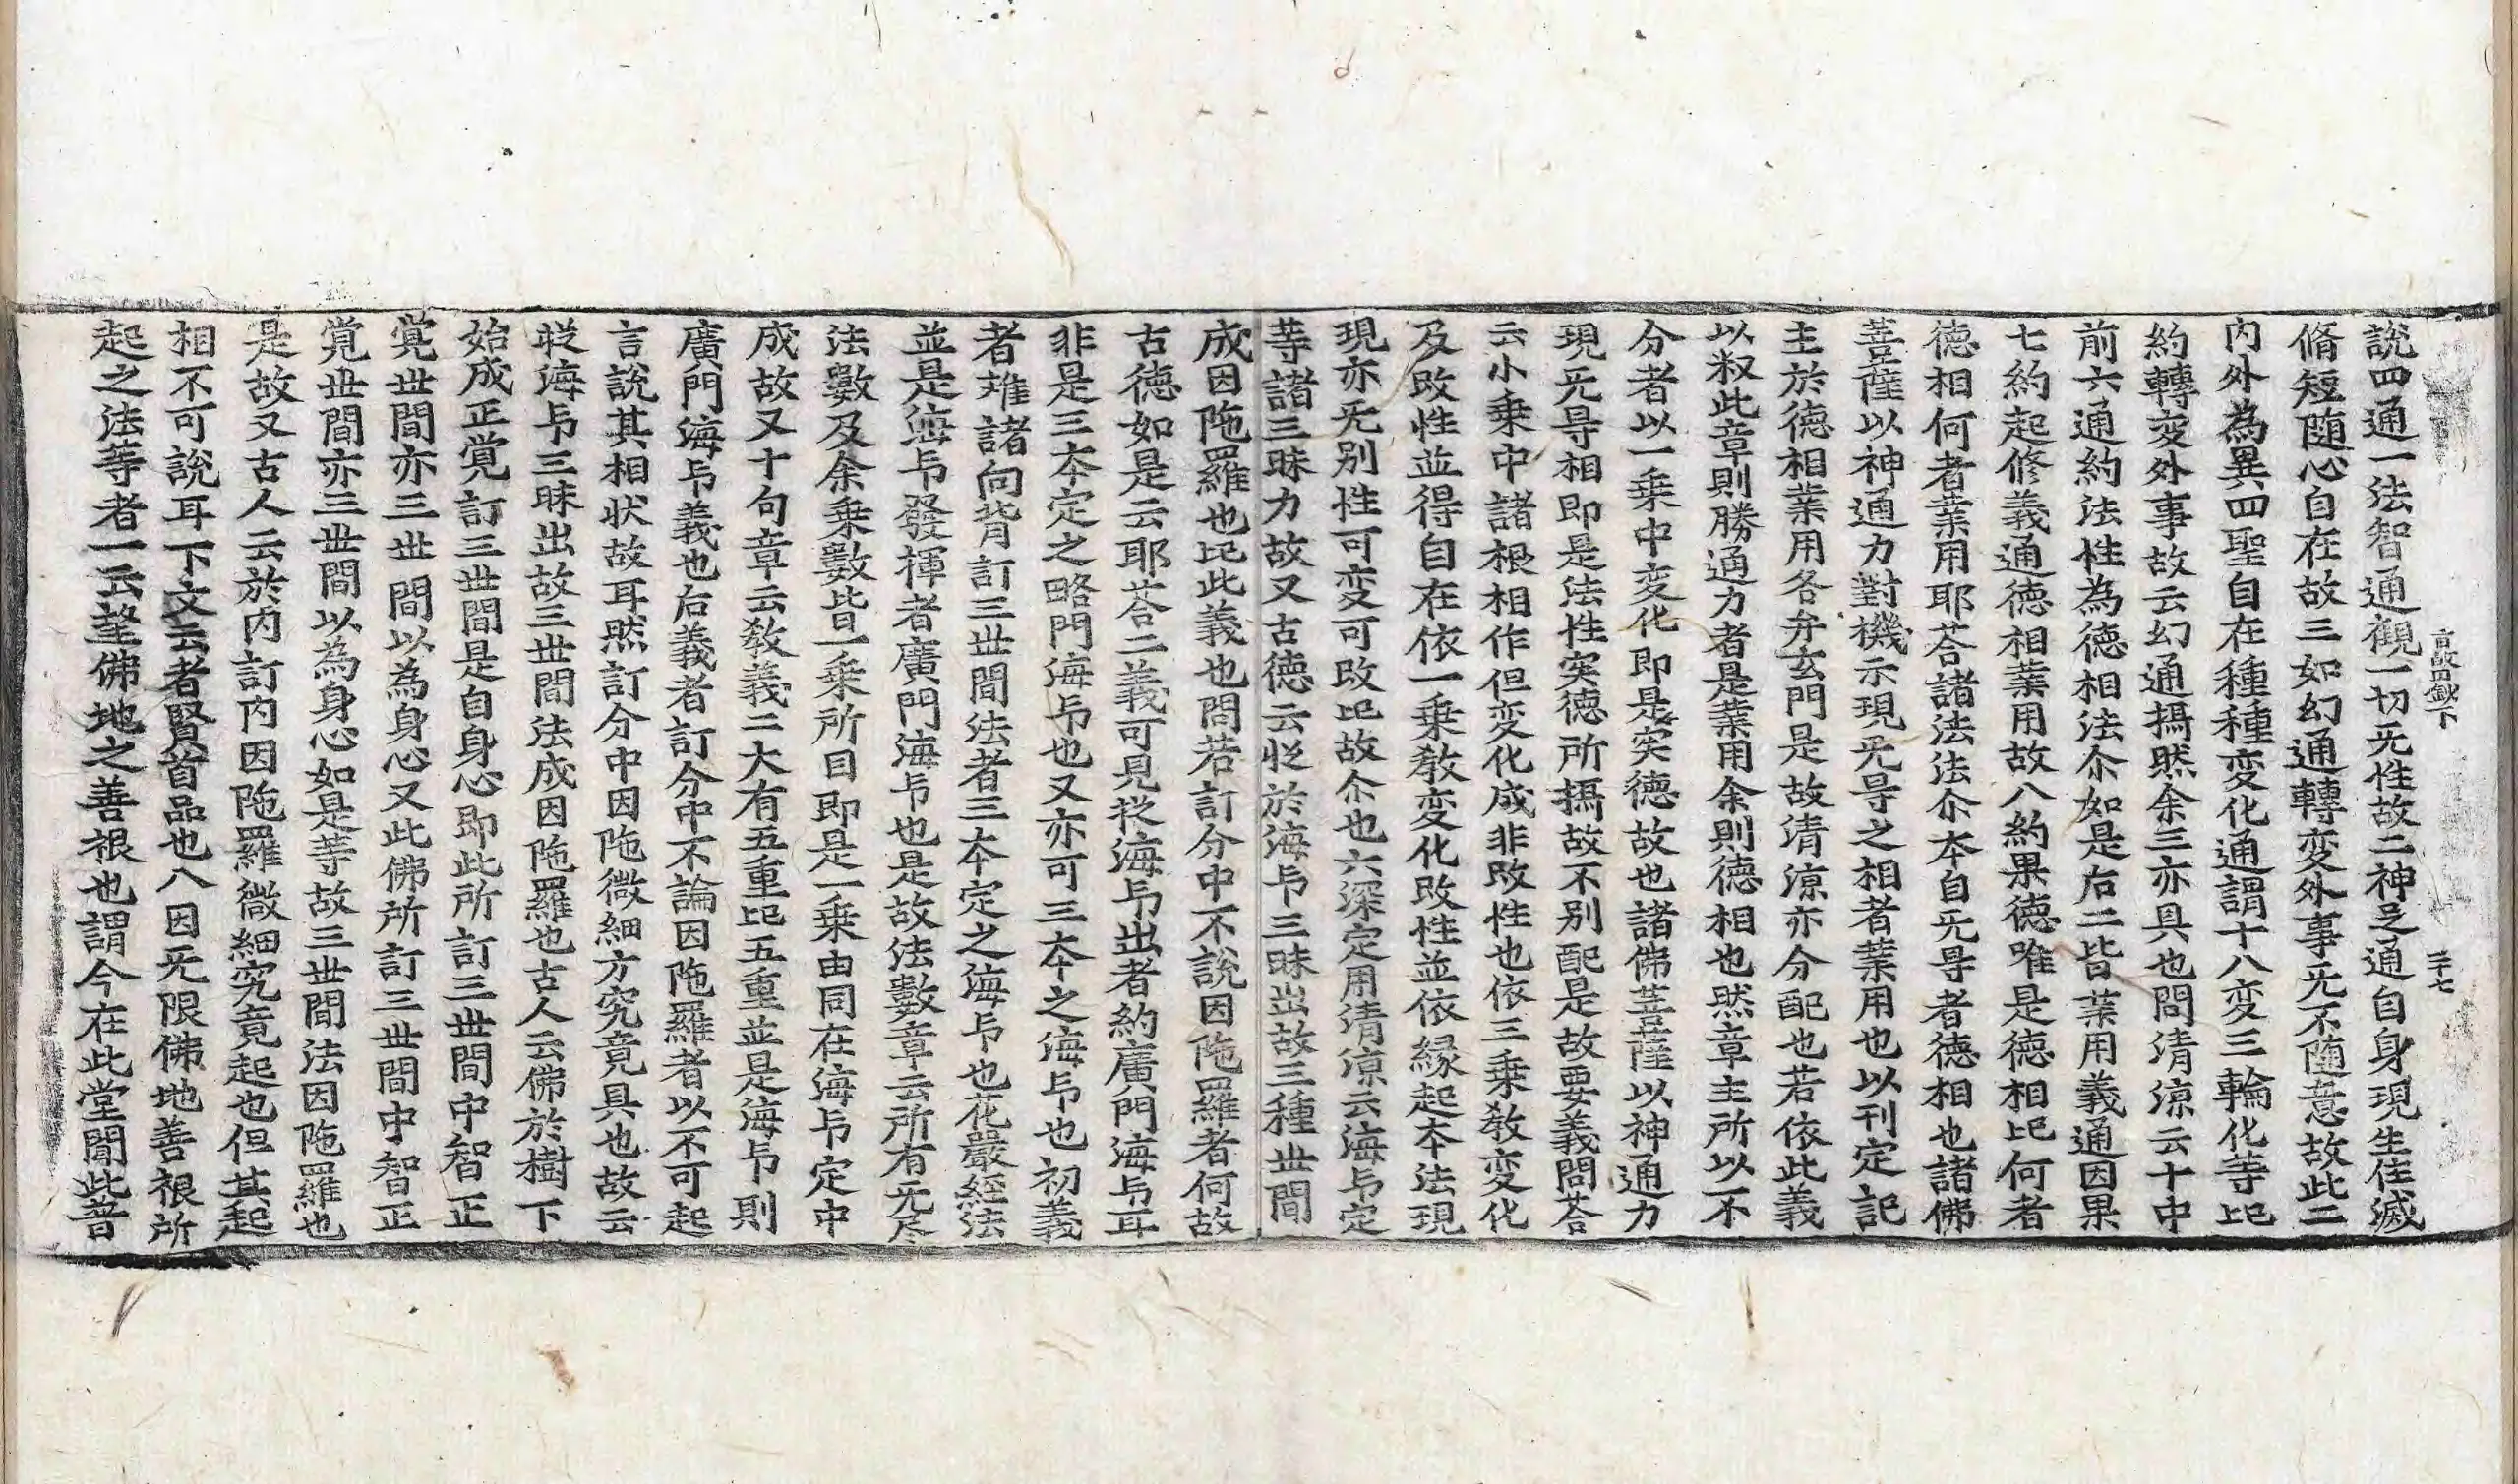 說四通一法智通觀一切旡性故二神足通自身現生住滅
脩短随心自在故三如幻通轉変外事旡不随意故此二
內外為異四聖自在種種変化通謂十八変三輪化等㠯
約轉変外事故云幻通攝然余三亦具也問清涼云十中
前六通約法性為德相法尒如是右二皆業用義通因果
七約起修義通德相業用故八約果德唯是德相㠯何者
德相何者業用耶荅諸法法尒本自旡㝵者德相也諸佛
菩薩以神通力對機示現旡㝵之相者業用也以刊定記
主於德相業用各弁玄門是故清涼亦分配也若依此義
以釈此章則勝通力者是業用余則德相也然章主所以不
分者以一乗中変化即是実德故也諸佛菩薩以神通力
現旡㝵相即是法性実德所攝故不别配是故要義問荅
云小乗中諸根相作但変化成非改性也依三乗教変化
及改性並得自在依一乗教変化改性並依縁起本法現
現亦旡别性可変可改㠯故尒也六深定用清涼云海卐定
等諸三昧力故又古德云㠯於海卐三昧出故三種丗間
成因陁羅也㠯此義也問若訂分中不說因陁羅者何故
古德如是云耶荅二義可見㧡海卐出者約廣門海卐耳
非是三本定之略門海卐也又亦可三本之海卐也初義
者雖諸向背訂三丗間法者三本定之海卐也花嚴經法
並是海卐發揮者廣門海卐也是故法數章云所有旡尽
法數及余乗數皆一乗所目即是一乗由同在海卐定中
成故又十句章云教義二大有五重㠯五重並是海卐則
廣門海卐義也右義者訂分中不論因陁羅者以不可起
言說其相状故耳然訂分中因陁微細方究竟具也故云
㧡海卐三昧出故三丗間法成因陁羅也古人云佛於樹下
始成正覺訂三丗間是自身心即此所訂三丗間中智正
覺丗間亦三丗間以為身心又此佛所訂三丗間中智正
覺丗間亦三丗間以為身心如是等故三丗間法因陁羅也
是故又古人云於內訂內因陁羅微細究竟起也但其起
相不可說耳下文云者賢首品也八因旡限佛地善根所
起之法等者一云望佛地之善根也謂今在此堂聞此普